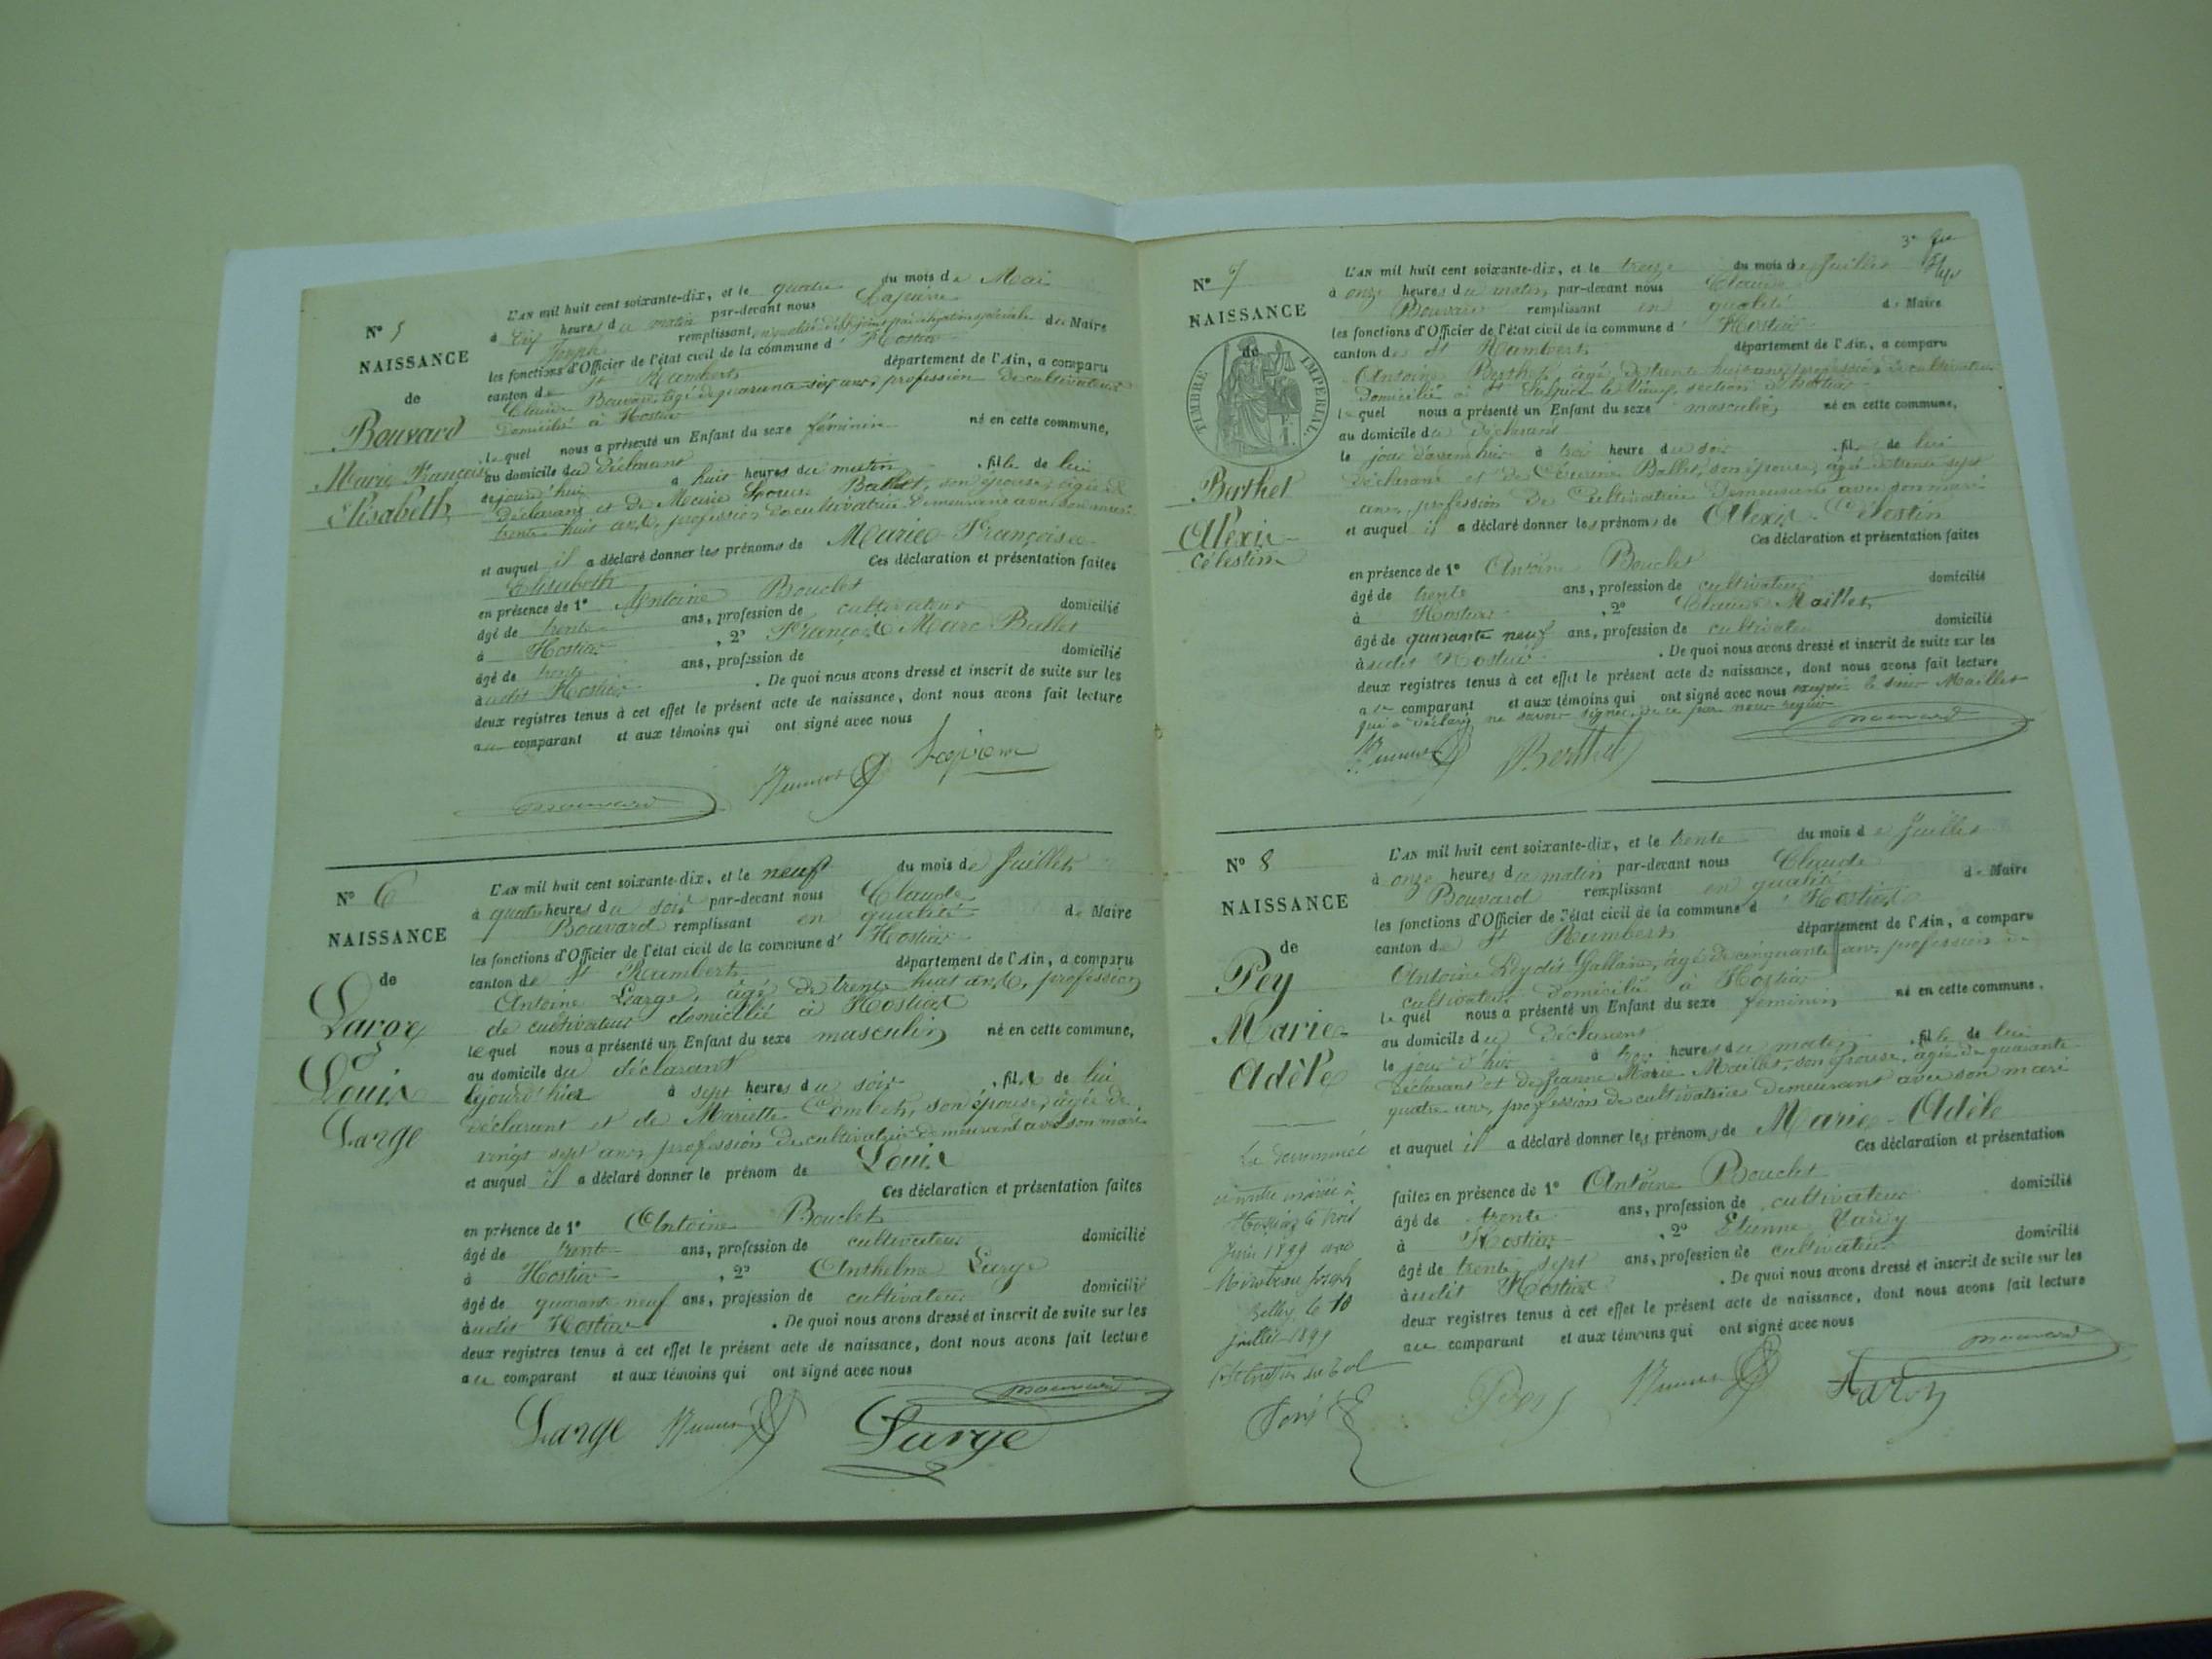 N° 5
NAISSANCE
de
Bouvard
Marie Françoise
Elisabeth
L'AN mil huit cent soixante-dix, et le quatre du mois de Mai
à Dix heures du matin par-devant nous Lapierre
Joseph remplissant en qualité d'adjoint par délégation spéciale de Maire
les fonctions d'Officier de l'état civil de la commune d' Hostiaz
canton de St Rambert département de l'Ain, a comparu
Claude Bouvard, âgé de quarante-six ans, profession de cultivateur
domicilié à Hostiaz
lequel nous a présenté un Enfant du sexe féminin né en cette commune,
au domicile du déclarant
cejourd'hui à huit heures du matin, fille de lui
déclarant et de Marie Louise Ballet, son épouse, âgée de
trente-huit ans, profession de cultivatrice demeurant avec son mari
et auquel il a déclaré donner les prénoms de Marie Françoise
Elisabeth Ces déclaration et présentation faites
en présence de 1° Antoine Bouclet
âgé de trente ans, profession de cultivateur domicilié
à Hostiaz, 2° François Marc Ballet
âgé de trente ans, profession de domicilié
audit Hostiaz. De quoi nous avons dressé et inscrit de suite sur les
deux registres tenus à cet effet le présent acte de naissance, dont nous avons fait lecture
au comparant et aux témoins qui ont signé avec nous
Lapierre
N° 6
NAISSANCE
de
Large
Louis
Large
L'AN mil huit cent soixante-dix, et le neuf du mois de Juillet
à quatre heures du soir par-devant nous Claude
Bouvard remplissant en qualité de Maire
les fonctions d'Officier de l'état civil de la commune d' Hostiaz
canton de St Rambert département de l'Ain, a comparu
Antoine Large, âgé de trente huit ans, profession
de cultivateur domicilié à Hostiaz
lequel nous a présenté un Enfant du sexe masculin né en cette commune,
au domicile du déclarant
le jour d'hier à sept heures du soir, fils de lui
déclarant et de Mariette Combet, son épouse, âgée de
vingt sept ans, profession de cultivatrice demeurant avec son mari
et auquel il a déclaré donner le prénom de Louis
Ces déclaration et présentation faites
en présence de 1° Antoine Bouclet
âgé de trente ans, profession de cultivateur domicilié
à Hostiaz, 2° Anthelme Large
âgé de quarante-neuf ans, profession de cultivateur domicilié
audit Hostiaz. De quoi nous avons dressé et inscrit de suite sur les
deux registres tenus à cet effet le présent acte de naissance, dont nous avons fait lecture
au comparant et aux témoins qui ont signé avec nous
Large Large
3e
N° 7
NAISSANCE
de
TIMBRE IMPERIAL.
Berthet
Alexis
Célestin
L'AN mil huit cent soixante-dix, et le treize du mois de Juillet
à onze heures du matin, par-devant nous Claude
Bouvard remplissant en qualité de Maire
les fonctions d'Officier de l'état civil de la commune d' Hostiaz
canton de St Rambert département de l'Ain, a comparu
Antoine Berthet, âgé de trente huit ans, profession de cultivateur
domicilié à St Sulpice le Vieux, section d'Hostiaz
lequel nous a présenté un Enfant du sexe masculin, né en cette commune,
au domicile du déclarant
le jour d'avant hier à trois heure du soir, fils de lui
déclarant et de Ballet, son épouse, âgée de trente sept
ans, profession de cultivatrice demeurant avec son mari
et auquel il a déclaré donner les prénoms de Alexis Célestin
Ces déclaration et présentation faites
en présence de 1° Antoine Bouclet
âgé de trente ans, profession de cultivateur domicilié
à Hostiaz, 2° Claude Maillet
âgé de quarante neuf ans, profession de cultivateur domicilié
audit Hostiaz. De quoi nous avons dressé et inscrit de suite sur les
deux registres tenus à cet effet le présent acte de naissance, dont nous avons fait lecture
au comparant et aux témoins qui ont signé avec nous excepté le sieur Maillet
qui a déclaré ne savoir signer, de ce par nous requis
Berthet
N° 8
NAISSANCE
de
Pey
Marie
Adèle
L'AN mil huit cent soixante-dix, et le trente du mois de Juillet
à onze heures du matin par-devant nous Claude
Bouvard remplissant en qualité de Maire
les fonctions d'Officier de l'état civil de la commune d' Hostiaz
canton de St Rambert département de l'Ain, a comparu
Antoine Pey dit Galland, âgé de cinquante ans, profession de
cultivateur domicilié à Hostiaz
lequel nous a présenté un Enfant du sexe féminin né en cette commune,
au domicile du déclarant
le jour d'hier à heures du matin, fille de lui
déclarant et de Jeanne Marie Maillet, son épouse, âgée de quarante
quatre ans, profession de cultivatrice demeurant avec son mari
et auquel il a déclaré donner les prénoms de Marie-Adèle
Ces déclaration et présentation
faites en présence de 1° Antoine Bouclet
âgé de trente ans, profession de cultivateur domicilié
à Hostiaz, 2° Etienne
âgé de trente sept ans, profession de cultivateur domicilié
audit Hostiaz. De quoi nous avons dressé et inscrit de suite sur les
deux registres tenus à cet effet le présent acte de naissance, dont nous avons fait lecture
au comparant et aux témoins qui ont signé avec nous
La dénommée
mariée à
Hostiaz le trois
Juin 1899 avec
Joseph
Belley le 10
juillet 1899